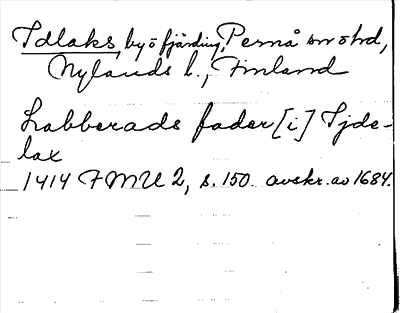 Idlaks, by o fjärding, Pernå sn o hd,
Nylands l., Finland
Labberads fader [i] Tjde-
lax
1414 FMU 2, s. 150. avskr. av 1684.